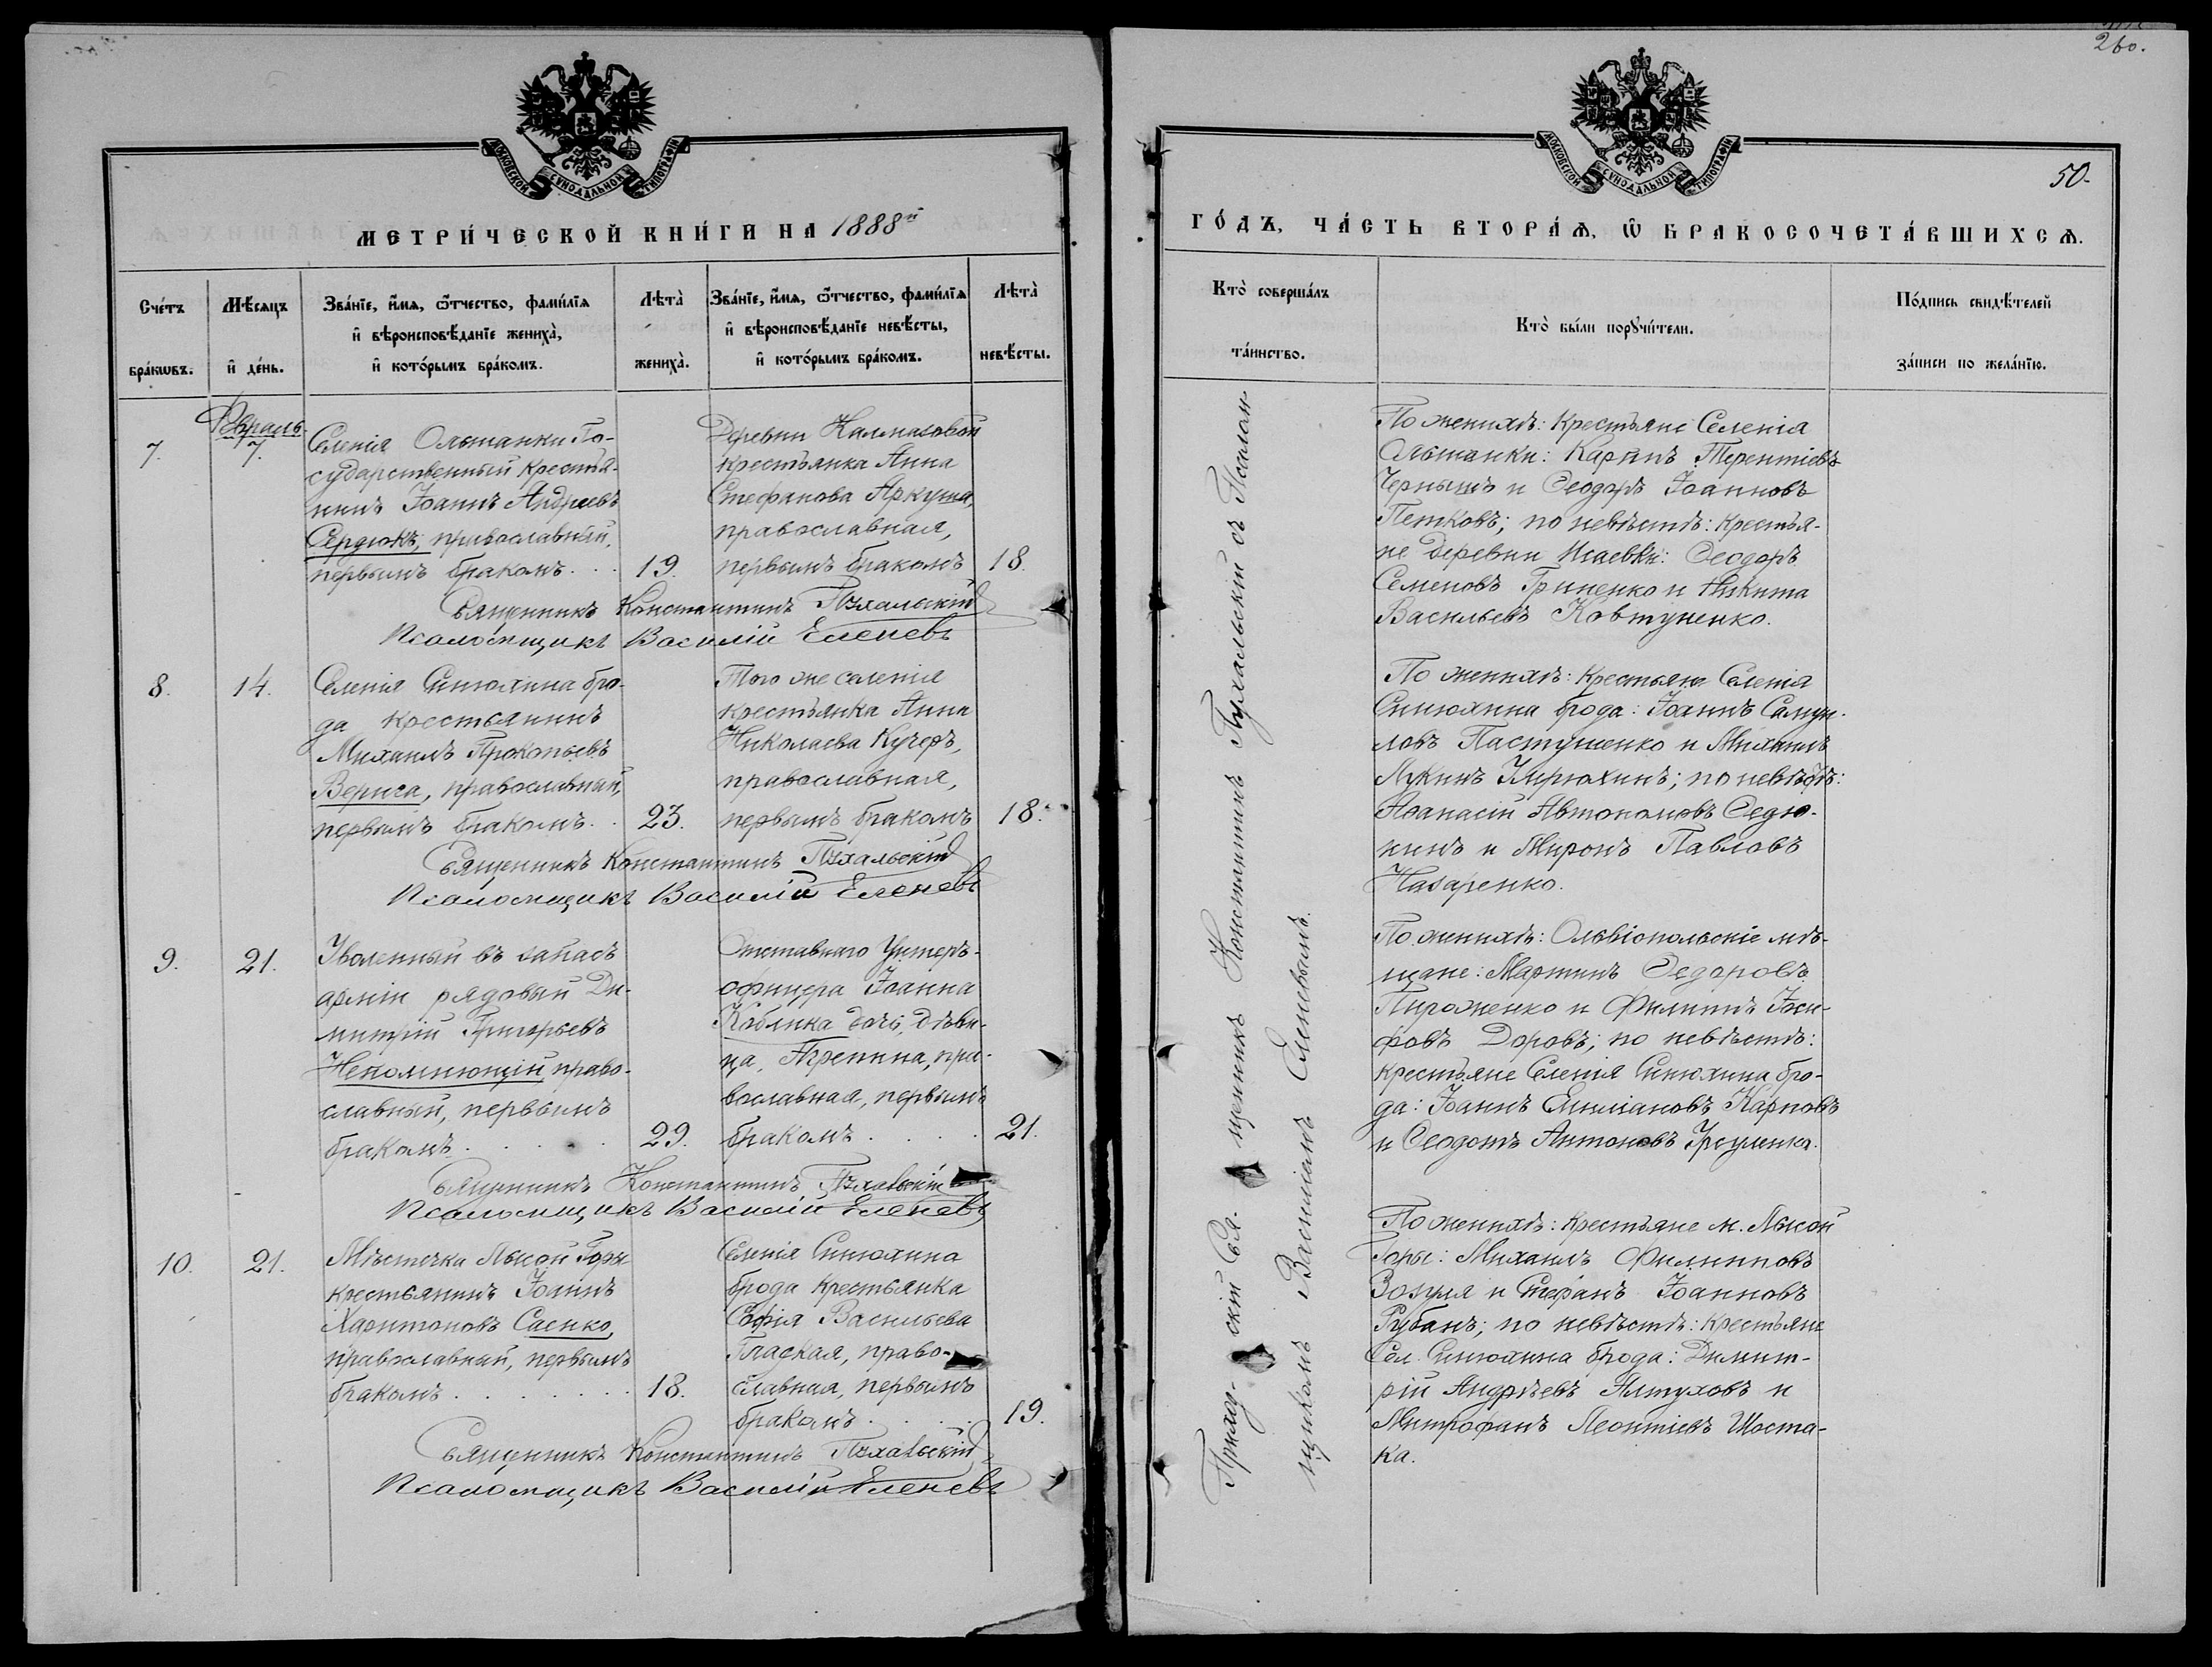 260.
50.
МОСКОВСКОЙ СѴНОДАЛЬНОЙ ТИПОГРАФІИ
МЕТРИ́ЧЕСКОЙ КНИ́ГИ НА 1888й
Сче́тъ бра́кѡвъ.
Мѣ́сяцъ и҆ де́нь.
Зва́нїе, и҆́мѧ, ѻ҆́тчество, фами́лїѧ
и҆ вѣроисповѣ́данїе жениха̀,
и҆ кото́рымъ бра́комъ.
Лѣта̀ жениха̀.
Зва́нїе, и҆́мѧ, ѻ҆́тчество, фами́лїѧ
и҆ вѣроисповѣ́данїе невѣ́сты,
и҆ кото́рымъ бра́комъ.
Лѣта̀ невѣ́сты.
Февраль
7. 7.
Селенія Ольшанки Го-
сударственный крестья-
нинъ Іоаннъ Андреевъ
Сердюкъ, православный,
первымъ бракомъ. . . 19.
Деревни Калмазовой
крестьянка Анна
Стефанова Аркуша,
православная,
первымъ бракомъ 18.
Священникъ Константинъ Пухальскій
Псаломщикъ Василій Еленевъ
8. 14.
Селенія Синюхина бро-
да крестьянинъ
Михаилъ Прокопьевъ
Верига, православный,
первымъ бракомъ. . 23.
Того же селенія
крестьянка Анна
Николаева Кучеръ,
православная,
первымъ бракомъ 18.
Священникъ Константинъ Пухальскій
Псаломщикъ Василій Еленевъ
9. 21.
Уволенный въ запасъ
арміи рядовый Ди-
митрій Григорьевъ
Непомнющій право-
славный, первымъ
бракомъ. . . . . 29.
Отставнаго Унтеръ-
офицера Іоанна
Коблика дочь, дѣви-
ца, Ирина, пра-
вославная, первымъ
бракомъ. . . . 21.
Священникъ Константинъ Пухальскій
Псаломщикъ Василій Еленевъ
10. 21.
Мѣстечка Лысой Горы
крестьянинъ Іоаннъ
Харитоновъ Саенко,
православный, первымъ
бракомъ. . . . . . . 18.
Селенія Синюхина
брода крестьянка
Софія Васильева
Гладкая, право-
славная, первымъ
бракомъ. . . . 19.
Священникъ Константинъ Пухальскій
Псаломщикъ Василій Еленевъ
МОСКОВСКОЙ СѴНОДАЛЬНОЙ ТИПОГРАФІИ
ГО́ДЪ, ЧА́СТЬ ВТОРА́Ѧ, Ѡ҆ БРАКОСОЧЕТА́ВШИХСѦ.
Кто̀ соверша́лъ
та́инство.
Кто̀ бы́ли порꙋчи́тели.
По́дпись свидѣ́телей
за́писи по жела́нїю.
Приход- скій Свя- щенникъ Константинъ Пухальскій съ Псалом-
щикомъ Василіемъ Еленевымъ.
По женихѣ: крестьяне Селенія
Ольшанки: Карпъ Терентіевъ
Чернышъ и Ѳеодоръ Іоанновъ
Петковъ; по невѣстѣ: крестья-
не деревни Исаевки: Ѳеодоръ
Семеновъ Гриненко и Никита
Васильевъ Ковтуненко.
По женихѣ: Крестьяне Селенія
Синюхина брода: Іоаннъ Самуи-
ловъ Пастушенко и Михаилъ
Лукинъ Имрюхинъ; по невѣстѣ:
Аѳанасій Автономовъ Седю-
кинъ и Миронъ Павловъ
Назаренко.
По женихѣ: Ольвіопольскіе мѣ-
щане: Мартинъ Ѳедоровъ
Пироженко и Филиппъ Іоси-
фовъ Доровъ; по невѣстѣ:
крестьяне Селенія Синюхина бро-
да: Іоаннъ Емиліановъ Карповъ
и Ѳеодотъ Антоновъ
По женихѣ: крестьяне м. Лысой
Горы: Михаилъ Филипповъ
Зозуля и Стефанъ Іоанновъ
Рубанъ; по невѣстѣ: крестьяне
Сел. Синюхина брода: Димит-
рій Андреевъ Алтуховъ и
Митрофанъ Леонтіевъ Шоста-
ка.